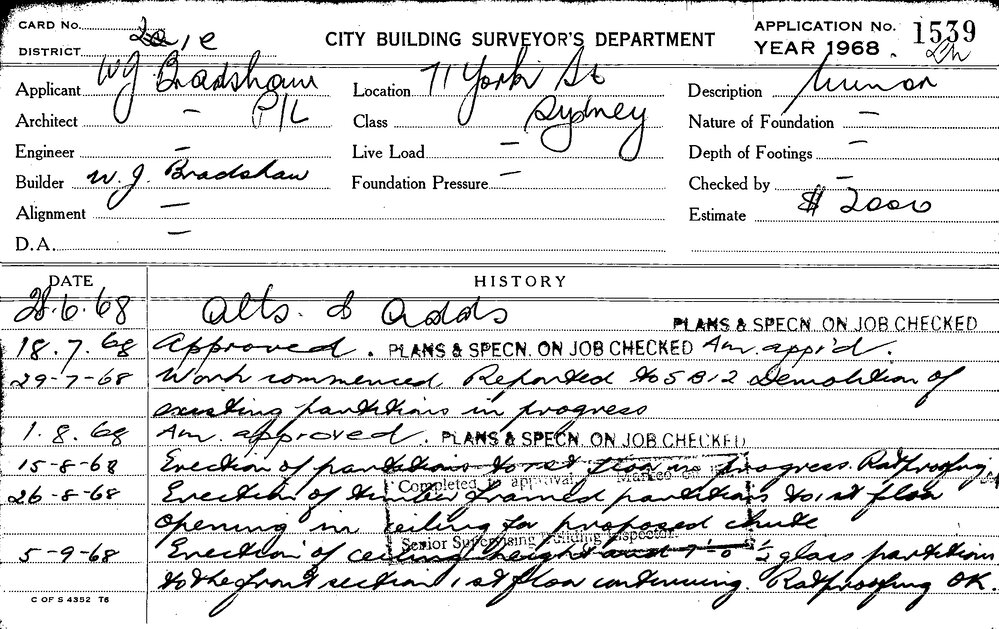 CARD No.
CITY BUILDING SURVEYOR'S DEPARTMENT
APPLICATION No. 1539
DISTRICT
YEAR 1968
Applicant W J Bradshaw P/L
Location 71 York St Sydney
Description Minor
Architect —
Class
Nature of Foundation —
Engineer —
Live Load —
Depth of Footings —
Builder W. J. Bradshaw
Foundation Pressure —
Checked by —
Alignment —
Estimate $ 2000
D.A. —
DATE HISTORY
28.6.68 Alts. & Adds
PLANS & SPECN. ON JOB CHECKED
18.7.68 Approved. PLANS & SPECN. ON JOB CHECKED Am. app'd.
29-7-68 Work commenced. Reported to S B 12 Demolition of
existing partitions in progress
1.8.68 Am. approved. PLANS & SPECN. ON JOB CHECKED
15-8-68 Erection of partitions to 1st floor in progress. Ratproofing
26-8-68 Erection of timber framed partitions to 1st floor
opening in ceiling for proposed chute
Completed approval Marked
Senior Supervising Building Inspector.
5-9-68 Erection of ceiling height and 7'-0 ½ glass partition
to the front section 1st floor continuing. Ratproofing OK.
C OF S 4352 T6